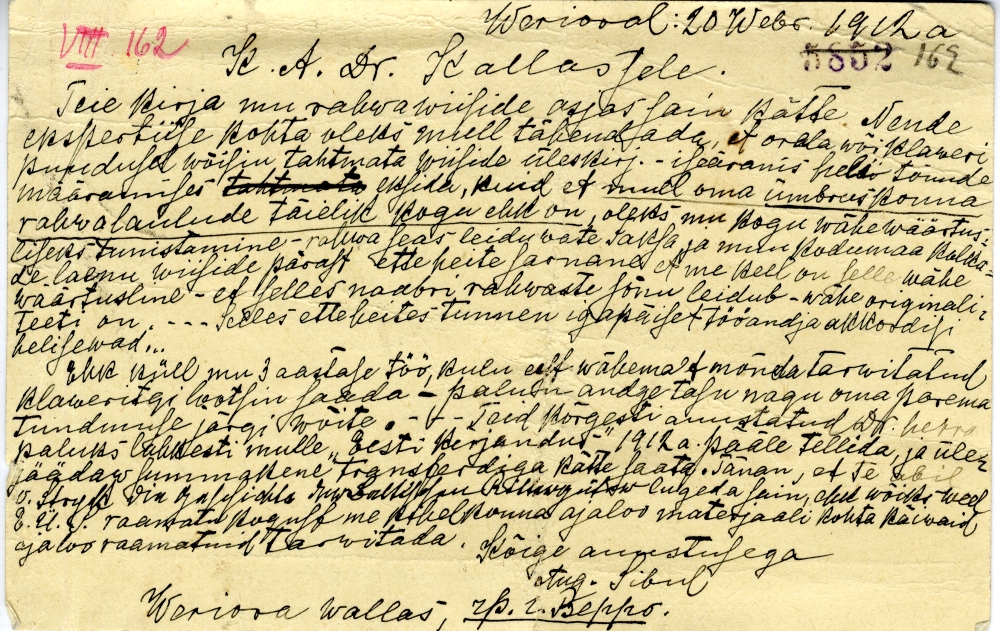 Werioral: 20 Webr. 1912 a
VIII 162
5852 162
K. A. Dr. Kallasfele.
Teie kirja mu rahwawiifide asjas fain kätte. Nende
ekspertiife kohta oleks mull tähendada, et orela wõi klaweri
puudusel wõifin tahtmata wiifide üleskirj. - ifeäranis toonde
määramifes tahtmata eksida, kuid et mull oma ümbruskonna
rahwalaulude täielik kogu ehk on, oleks mu kogu wähewäärtus-
lifeks tunistamine - rahwa feas leiduwate Saksa ja muu kodumaa
laenu wiifide päraft etteheite farnane, et me keel on felle wähe
wäärtusline - et felles naabri rahwaste fõnu leidub - wähe originali-
teeti on. - - - Selles etteheites tunnen igapäifet tööandja akkordifi
helifewad...
Ehk küll mu 3 aastafe töö, kulu eft wähemalt mõnda tarwitatud
klaweritgi lootfin faada - palufin andge tafu nagu oma parema
tundmufe järgi wõite. - - - Teid kõrgesti auustatud Dr. herra
paluks lahkesti mulle "Eesti Kirjandus" 1912 a. pääle tellida, ja üle-
jäädaw fummakene transferdiga kätte faata. Tänan, et Te abil
v. Stryk lugeda fain, ehk wõiks weel
E. Ü. S. raamatukogust me kihelkonna ajaloo materjaali kohta käiwaid
ajalooraamatuid tarwitada.
Kõige auustusega
Aug. Sibul
Weriora wallas, Beppo.